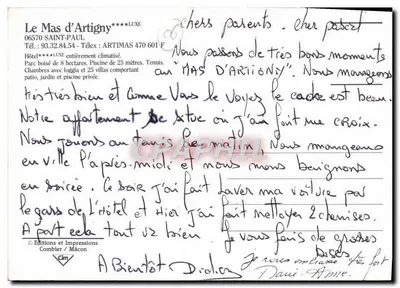 Le Mas d'Artigny****LUXE
06570 SAINT-PAUL
Tél. : 93.32.84.54 - Télex : ARTIMAS 470 601 F
Hôtel****LUXE entièrement climatisé.
Parc boisé de 8 hectares. Piscine de 25 mètres. Tennis.
Chambres avec loggia et 25 villas comportant
patio, jardin et piscine privée.
chers parents. cher pascal
Nous passons de très bons moments
au "MAS D'ARTIGNY". Nous mangeons
très très bien et comme vous le voyez le cadre est beau.
Notre appartement se situe ou j'ai fait une croix.
Nous jouons au tennis le matin, Nous mangeons
en ville l'après-midi et nous nous baignons
en soirée. Le soir j'ai fait laver ma voiture par
le gars de l'Hôtel et Hier j'ai fait nettoyer 2 chemises.
A part cela tout va bien. Je vous fais de grosses
bises
© Editions et Impressions
Combier / Mâcon
Cim
A Bientôt
Je vous embrasse très fort
Anne